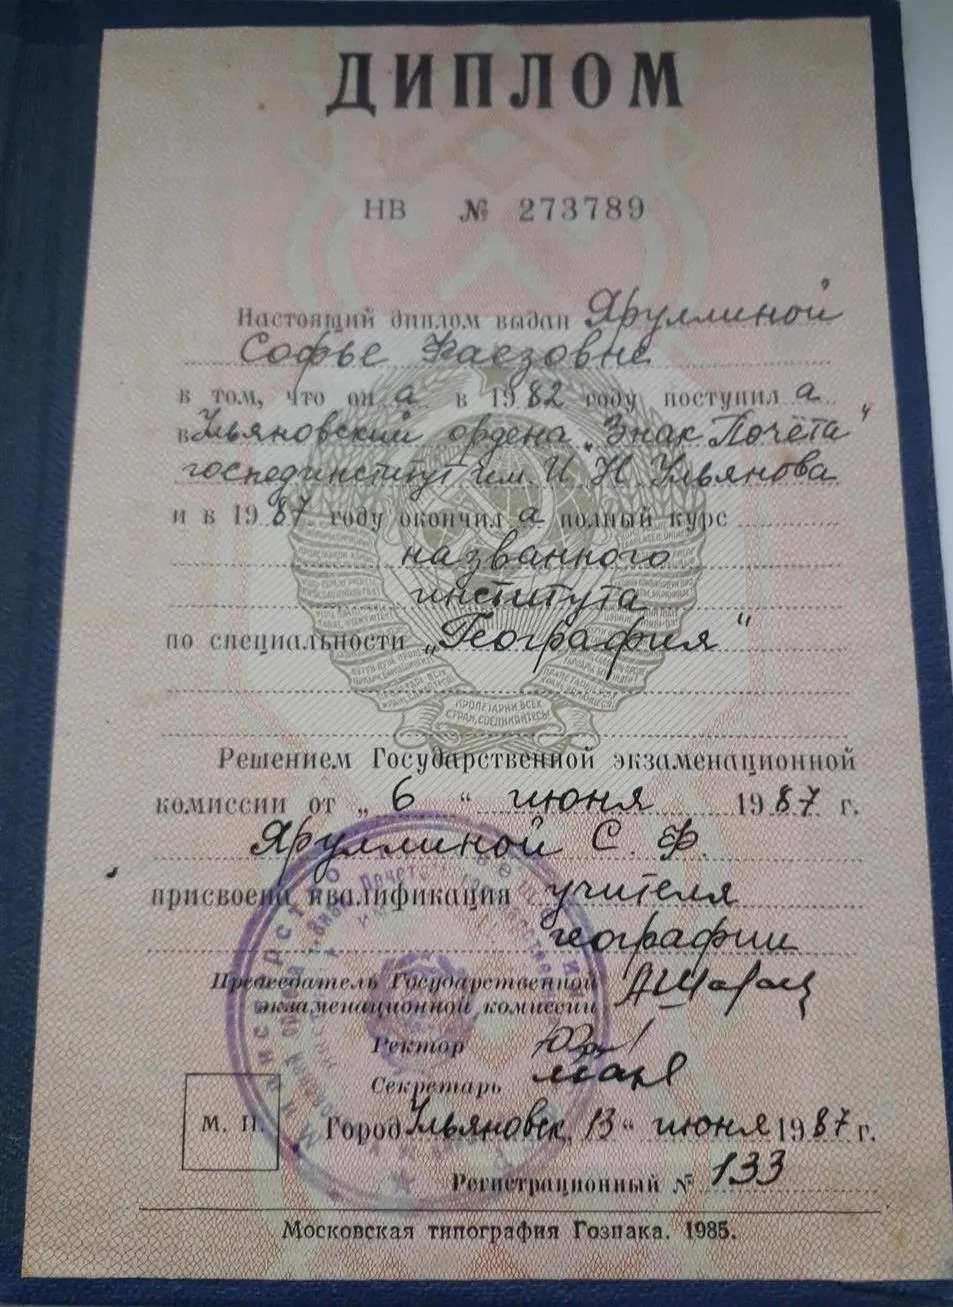 ДИПЛОМ
НВ № 273789
Настоящий диплом выдан Яруллиной
Софье Фаезовне
в том, что он а в 1982 году поступил а
в Ульяновский ордена „Знак Почёта"
госпединститут им. И. Н. Ульянова
и в 1987 году окончил а полный курс
названного
института
по специальности „География"
ПРОЛЕТАРИИ ВСЕХ
СТРАН, СОЕДИНЯЙТЕСЬ!
Решением Государственной экзаменационной
комиссии от „ 6 " июня 1987 г.
Яруллиной С. Ф.
присвоена квалификация учителя
географии
Председатель Государственной
экзаменационной комиссии
Ректор
Секретарь
М. П. Город Ульяновск, 13 " июня 1987 г.
Регистрационный № 133
Московская типография Гознака. 1985.